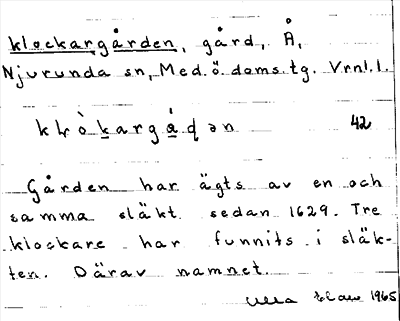 klockargården, gård, Å,
Njurunda sn, Med.ö.doms.tg. Vrnl.l.
klòkargádən 42
Gården har ägts av en och
samma släkt sedan 1629. Tre
klockare har funnits i släk-
ten. Därav namnet.
Ulla 1965